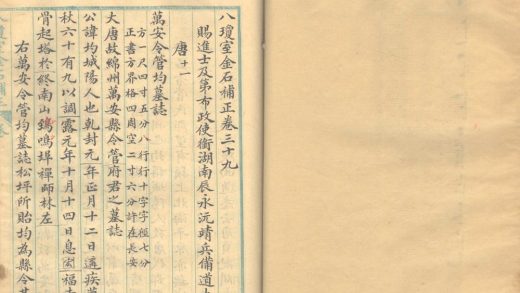 八瓊室金石補正卷三十九
賜進士及第布政使銜湖南辰永沅靖兵備道
唐十一
萬安令管均墓誌
方一尺四寸五分八行行十字字徑七分
正書方界格四周空二寸六分許在長安
大唐故綿州萬安縣令管府君之墓誌
公諱均城陽人也乾封元年正月十二日遘疾
杖六十有九以調露元年十月十四日息
骨起塔於終南山鵄鳴埠禪師林左
右萬安令管均墓誌松坪所貽均為縣令